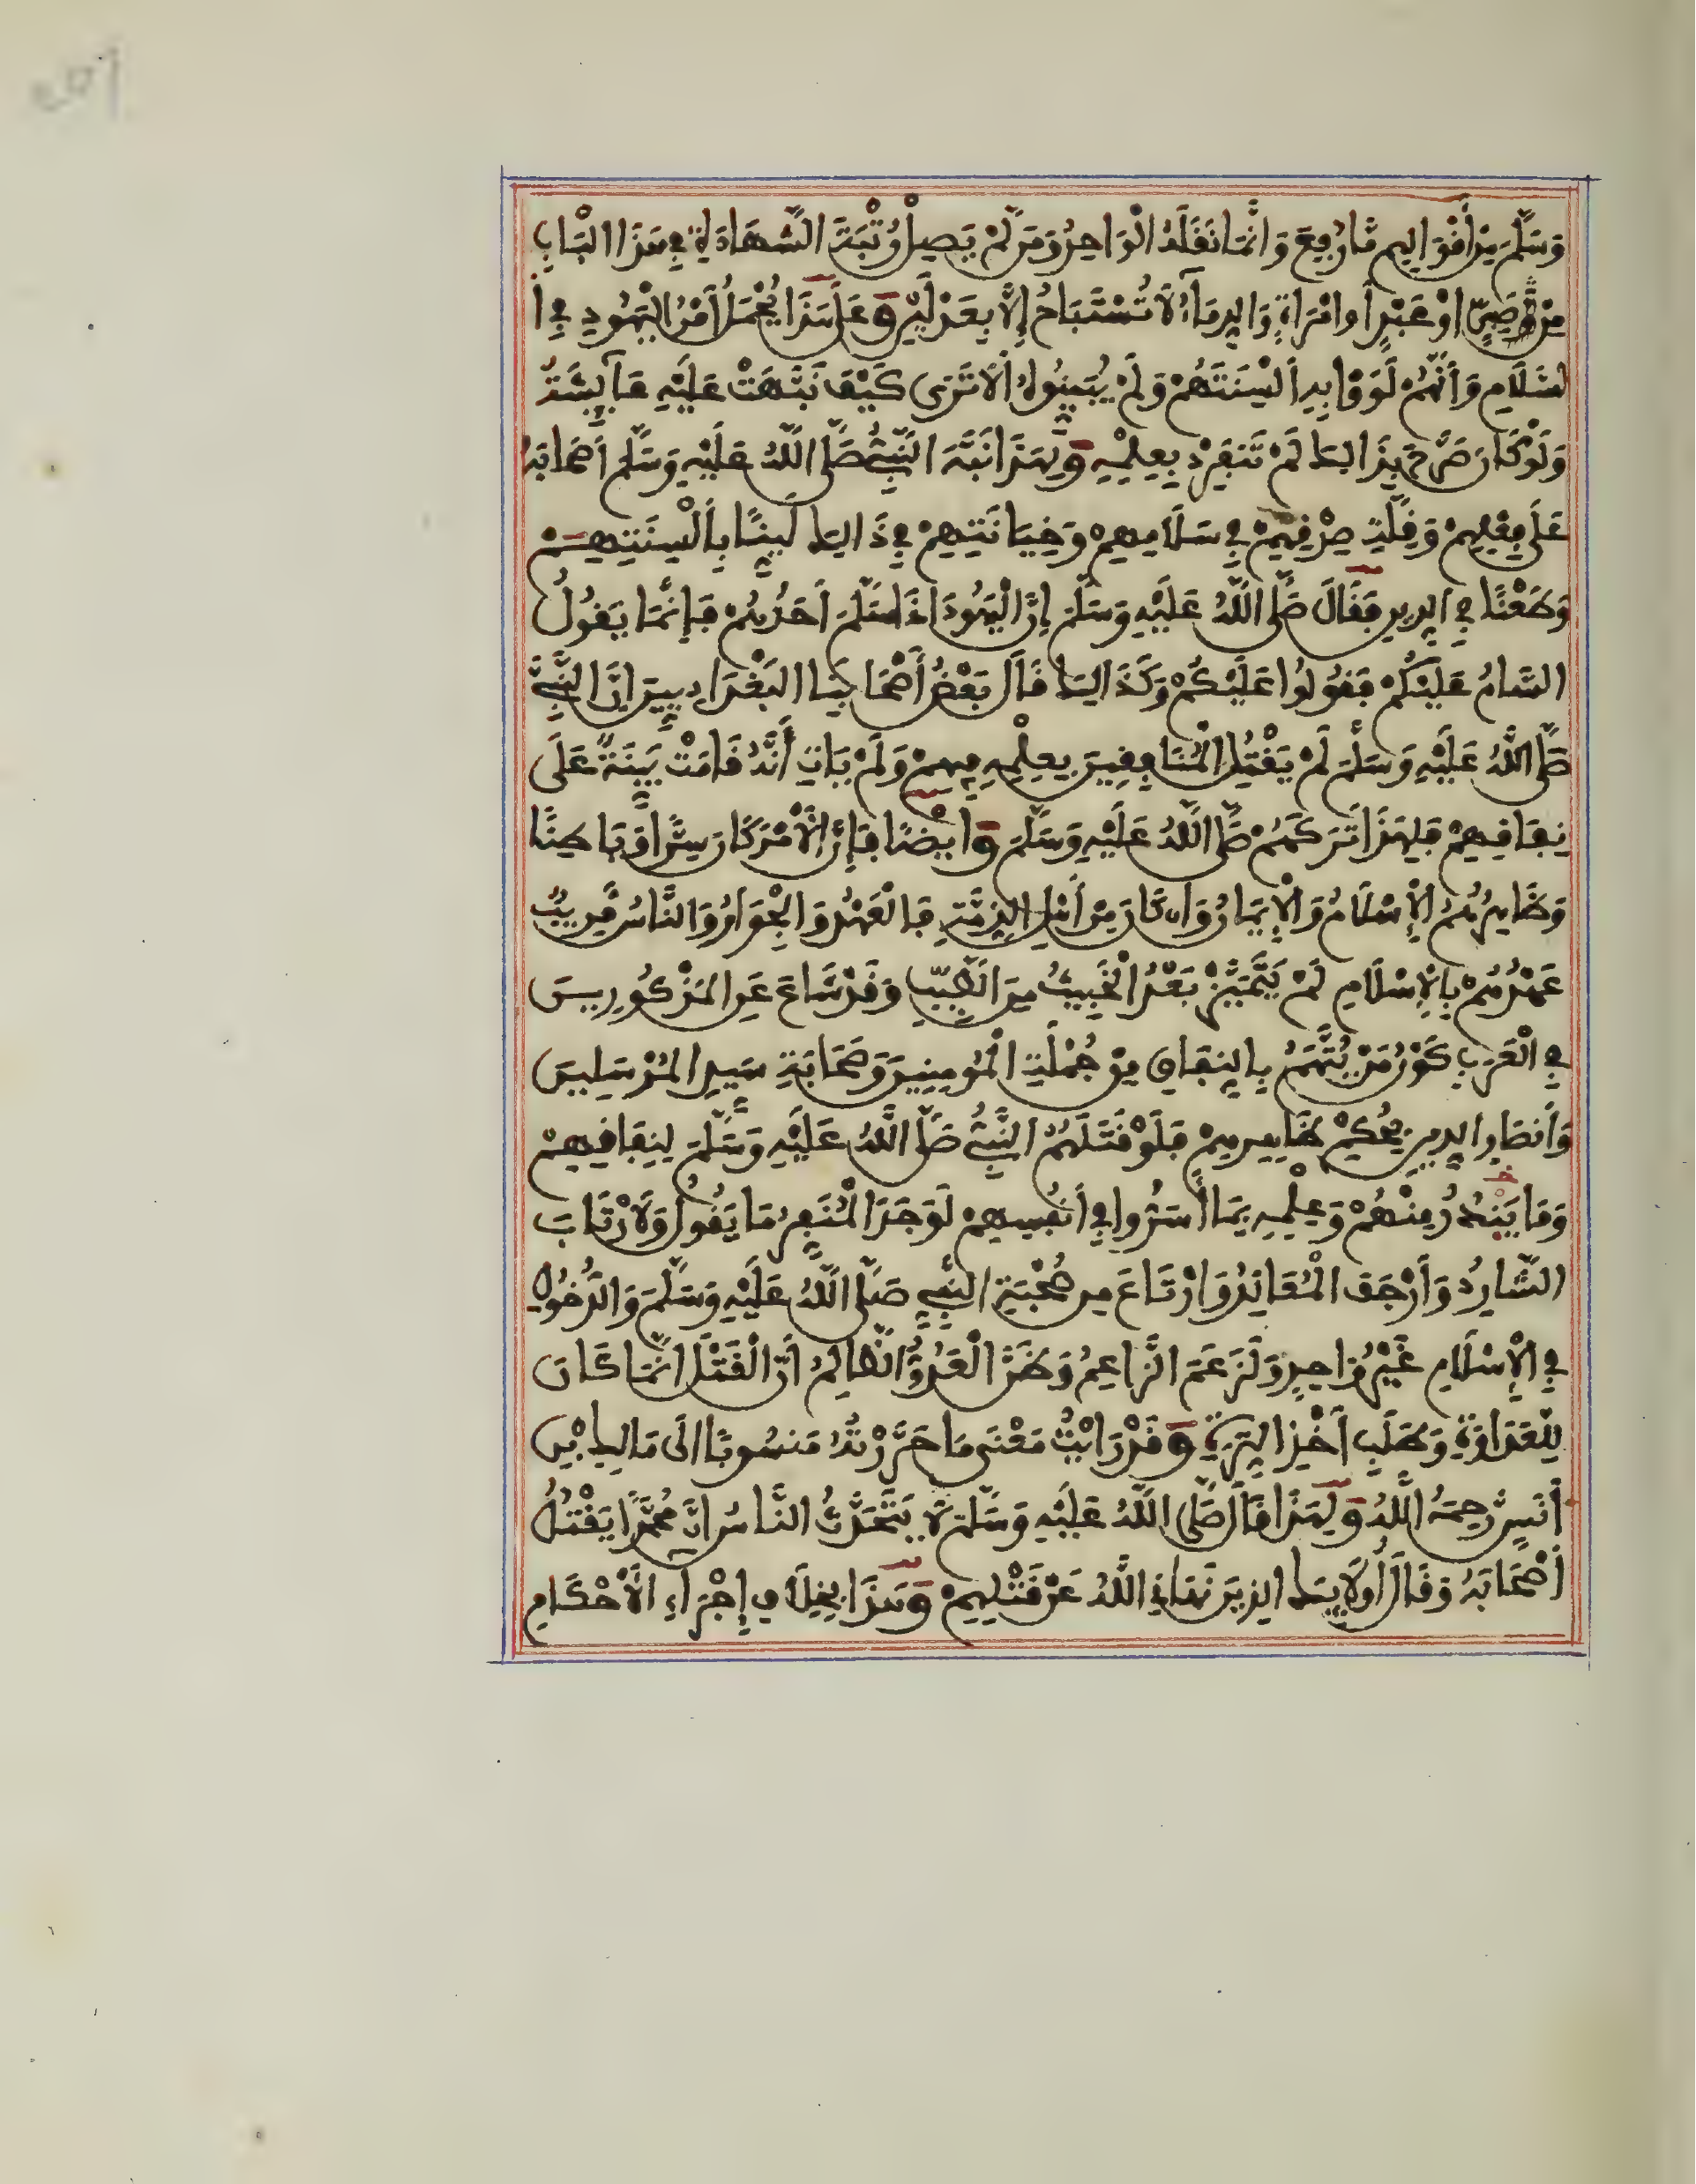 وَسَلَّمَ مِنْ أَقْوَالِهِمْ مَّا رُفِعَ وَإِنَّمَا نَقَلَهُ الْوَاحِدُ وَمَن لَّمْ يَصِلْ رُتْبَةَ الشَّهَادَةِ فِي هَذَا الْبَابِ
مِنْ صَبِيٍّ اوْ عَبْدٍ أَوِ امْرَأَةٍ وَالدِّمَآءُ لَا تُسْتَبَاحُ إِلَّا بِعَدْلَيْنِ وَعَلَى هَذَا يُحْمَلُ أَمْرُ الْيَهُودِ فِي ا
لسَّلَامِ وَأَنَّهُمْ لَوَوْا بِهِ أَلْسِنَتَهُمْ وَلَمْ يُبَيِّنُوهُ أَلَا تَرَى كَيْفَ نَبَّهَتْ عَلَيْهِ عَآئِشَةُ
وَلَوْ كَانَ صَرَّحَ بِذَالِكَ لَمْ تَنْفَرِدْ بِعِلْمِهِ وَلِهَذَا نَبَّهَ النَّبِيُّ صَلَّى اللَّهُ عَلَيْهِ وَسَلَّمَ أَصْحَابَهُ
عَلَى فِعْلِهِمْ وَقِلَّةِ صِدْقِهِمْ فِي سَلَامِهِمْ وَخِيَانَتِهِمْ فِي ذَالِكَ لَيًّا بِأَلْسِنَتِهِمْ
وَطَعْنًا فِي الدِّينِ فَقَالَ صَلَّى اللَّهُ عَلَيْهِ وَسَلَّمَ إِنَّ الْيَهُودَ اذَا سَلَّمَ أَحَدُهُمْ فَإِنَّمَا يَقُولُ
السَّامُ عَلَيْكُمْ فَقُولُوا عَلَيْكُمْ وَكَذَالِكَ قَالَ بَعْضُ أَصْحَابِنَا الْبَغْدَادِيِّينَ إِنَّ النَّبِيَّ
صَلَّى اللَّهُ عَلَيْهِ وَسَلَّمَ لَمْ يَقْتُلِ الْمُنَافِقِينَ بِعِلْمِهِ فِيهِمْ وَلَمْ يَاتِ أَنَّهُ قَامَتْ بَيِّنَةٌ عَلَى
نِفَاقِهِمْ فَلِهَذَا تَرَكَهُمْ صَلَّى اللَّهُ عَلَيْهِ وَسَلَّمَ وَأَيْضًا فَإِنَّ الْأَمْرَ كَانَ سِرًّا وَبَاطِنًا
وَظَاهِرُهُمُ الْإِسْلَامُ وَالْإِيمَانُ وَإِن كَانَ مِنْ أَهْلِ الذِّمَّةِ فَالْعَهْدُ وَالْجِوَارُ وَالنَّاسُ قَرِيبٌ
عَهْدُهُمْ بِالْإِسْلَامِ لَمْ يَتَمَيَّزْ بَعْدُ الْخَبِيثُ مِنَ الطَّيِّبِ وَقَدْ شَاعَ عَنِ الْمَذْكُورِينَ
فِي الْعَرَبِ كَوْنُ مَنْ يُتَّهَمُ بِالنِّفَاقِ مِنْ جُمْلَةِ الْمُومِنِينَ وَصَحَابَةِ سَيِّدِ الْمُرْسَلِينَ
وَأَنصَارِ الدِّينِ بِحُكْمِ ظَاهِرِهِمْ فَلَوْ قَتَلَهُمُ النَّبِيُّ صَلَّى اللَّهُ عَلَيْهِ وَسَلَّمَ لِنِفَاقِهِمْ
وَمَا يَبْدُرُ مِنْهُمْ وَعِلْمِهِ بِمَا أَسَرُّوا فِي أَنفُسِهِمْ لَوَجَدَ الْمُنَفِّرُ مَا يَقُولُ وَلَارْتَابَ
الشَّارِدُ وَأَرْجَفَ الْمُعَانِدُ وَارْتَاعَ مِن صُحْبَةِ النَّبِيِّ صَلَّى اللَّهُ عَلَيْهِ وَسَلَّمَ وَالدُّخُولِ
فِي الْإِسْلَامِ غَيْرُ وَاحِدٍ وَلَزَعَمَ الزَّاعِمُ وَظَنَّ الْعَدُوُّ الظَّالِمُ أَنَّ الْقَتْلَ إِنَّمَا كَانَ
لِلْعَدَاوَةِ وَطَلَبِ أَخْذِ التِّرَةِ وَقَدْ رَأَيْتُ مَعْنَى مَا حَرَّرْتُهُ مَنسُوبًا الَى مَالِكِ بْنِ
أَنَسٍ رَّحِمَهُ اللَّهُ وَلِهَذَا قَالَ صَلَّى اللَّهُ عَلَيْهِ وَسَلَّمَ لَا يَتَحَدَّثُ النَّاسُ أَنَّ مُحَمَّدًا يَقْتُلُ
أَصْحَابَهُ وَقَالَ أُولَائِكَ الذِينَ نَهَانِي اللَّهُ عَنْ قَتْلِهِمْ وَهَذَا بِخِلَافِ إِجْرَاءِ الْأَحْكَامِ